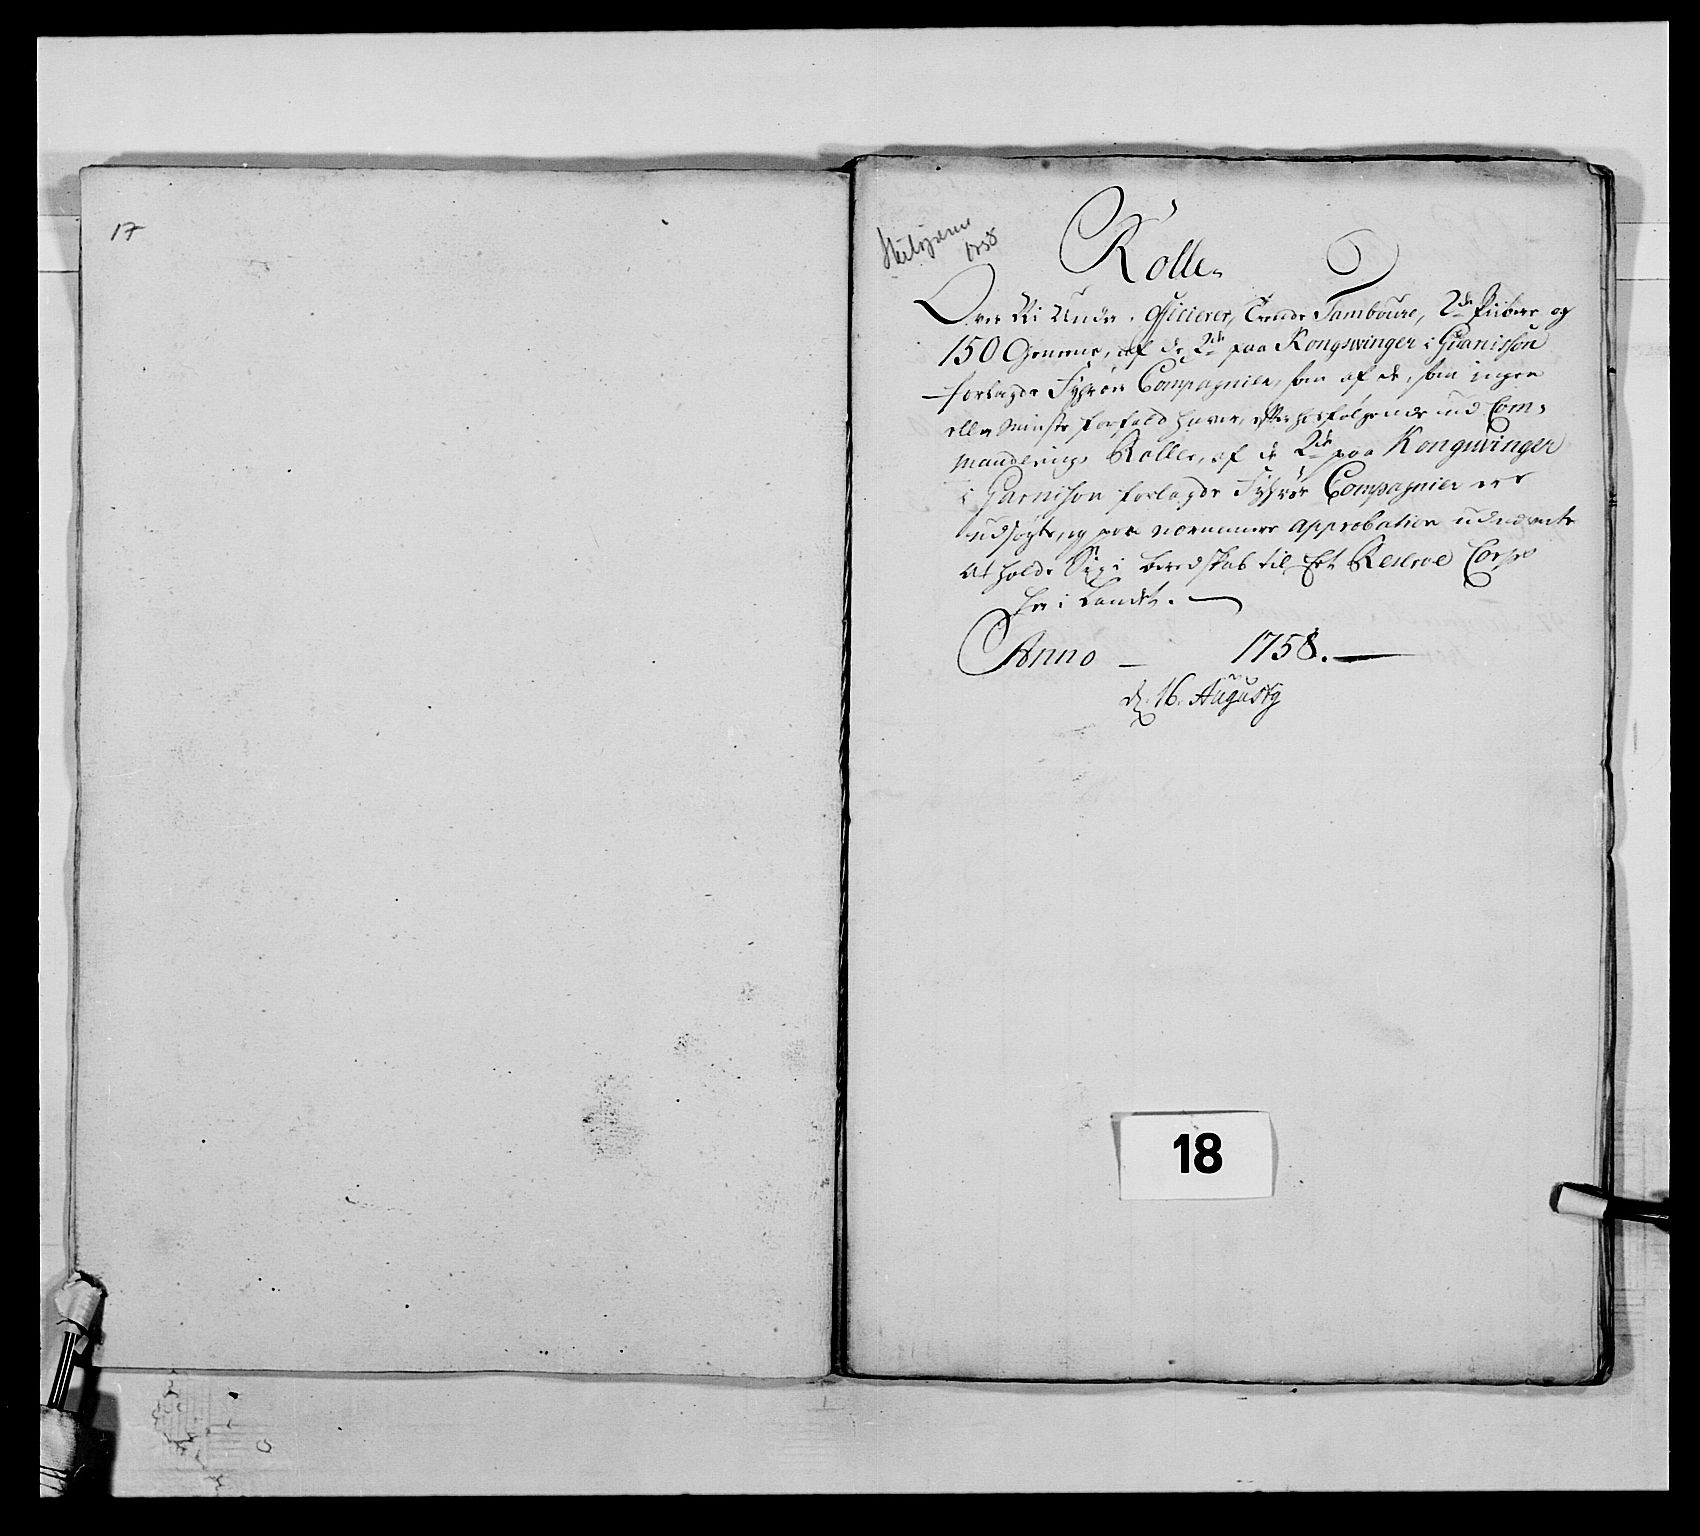 17
Skiløberne
1758
Rolle
Over Ni Under-Officierer, Trende Tamboure, 2de Piibere og
150 Gemene, af de 2de paa Kongswinger i Guarnison
forlagde Skiløber Compagnier, som af de, som ingen
eller minste forfald haver, efter hosfølgende ud Com-
manderings Roller, af de 2de paa Kongswinger
i Garnison forlagde Compagnier ere
udsøgte, og paa nærmere approbation
at holde Sig i beredskab til Et Reserve Corps
her i Landet.
Anno 1758.
d. 16. Augusty
18